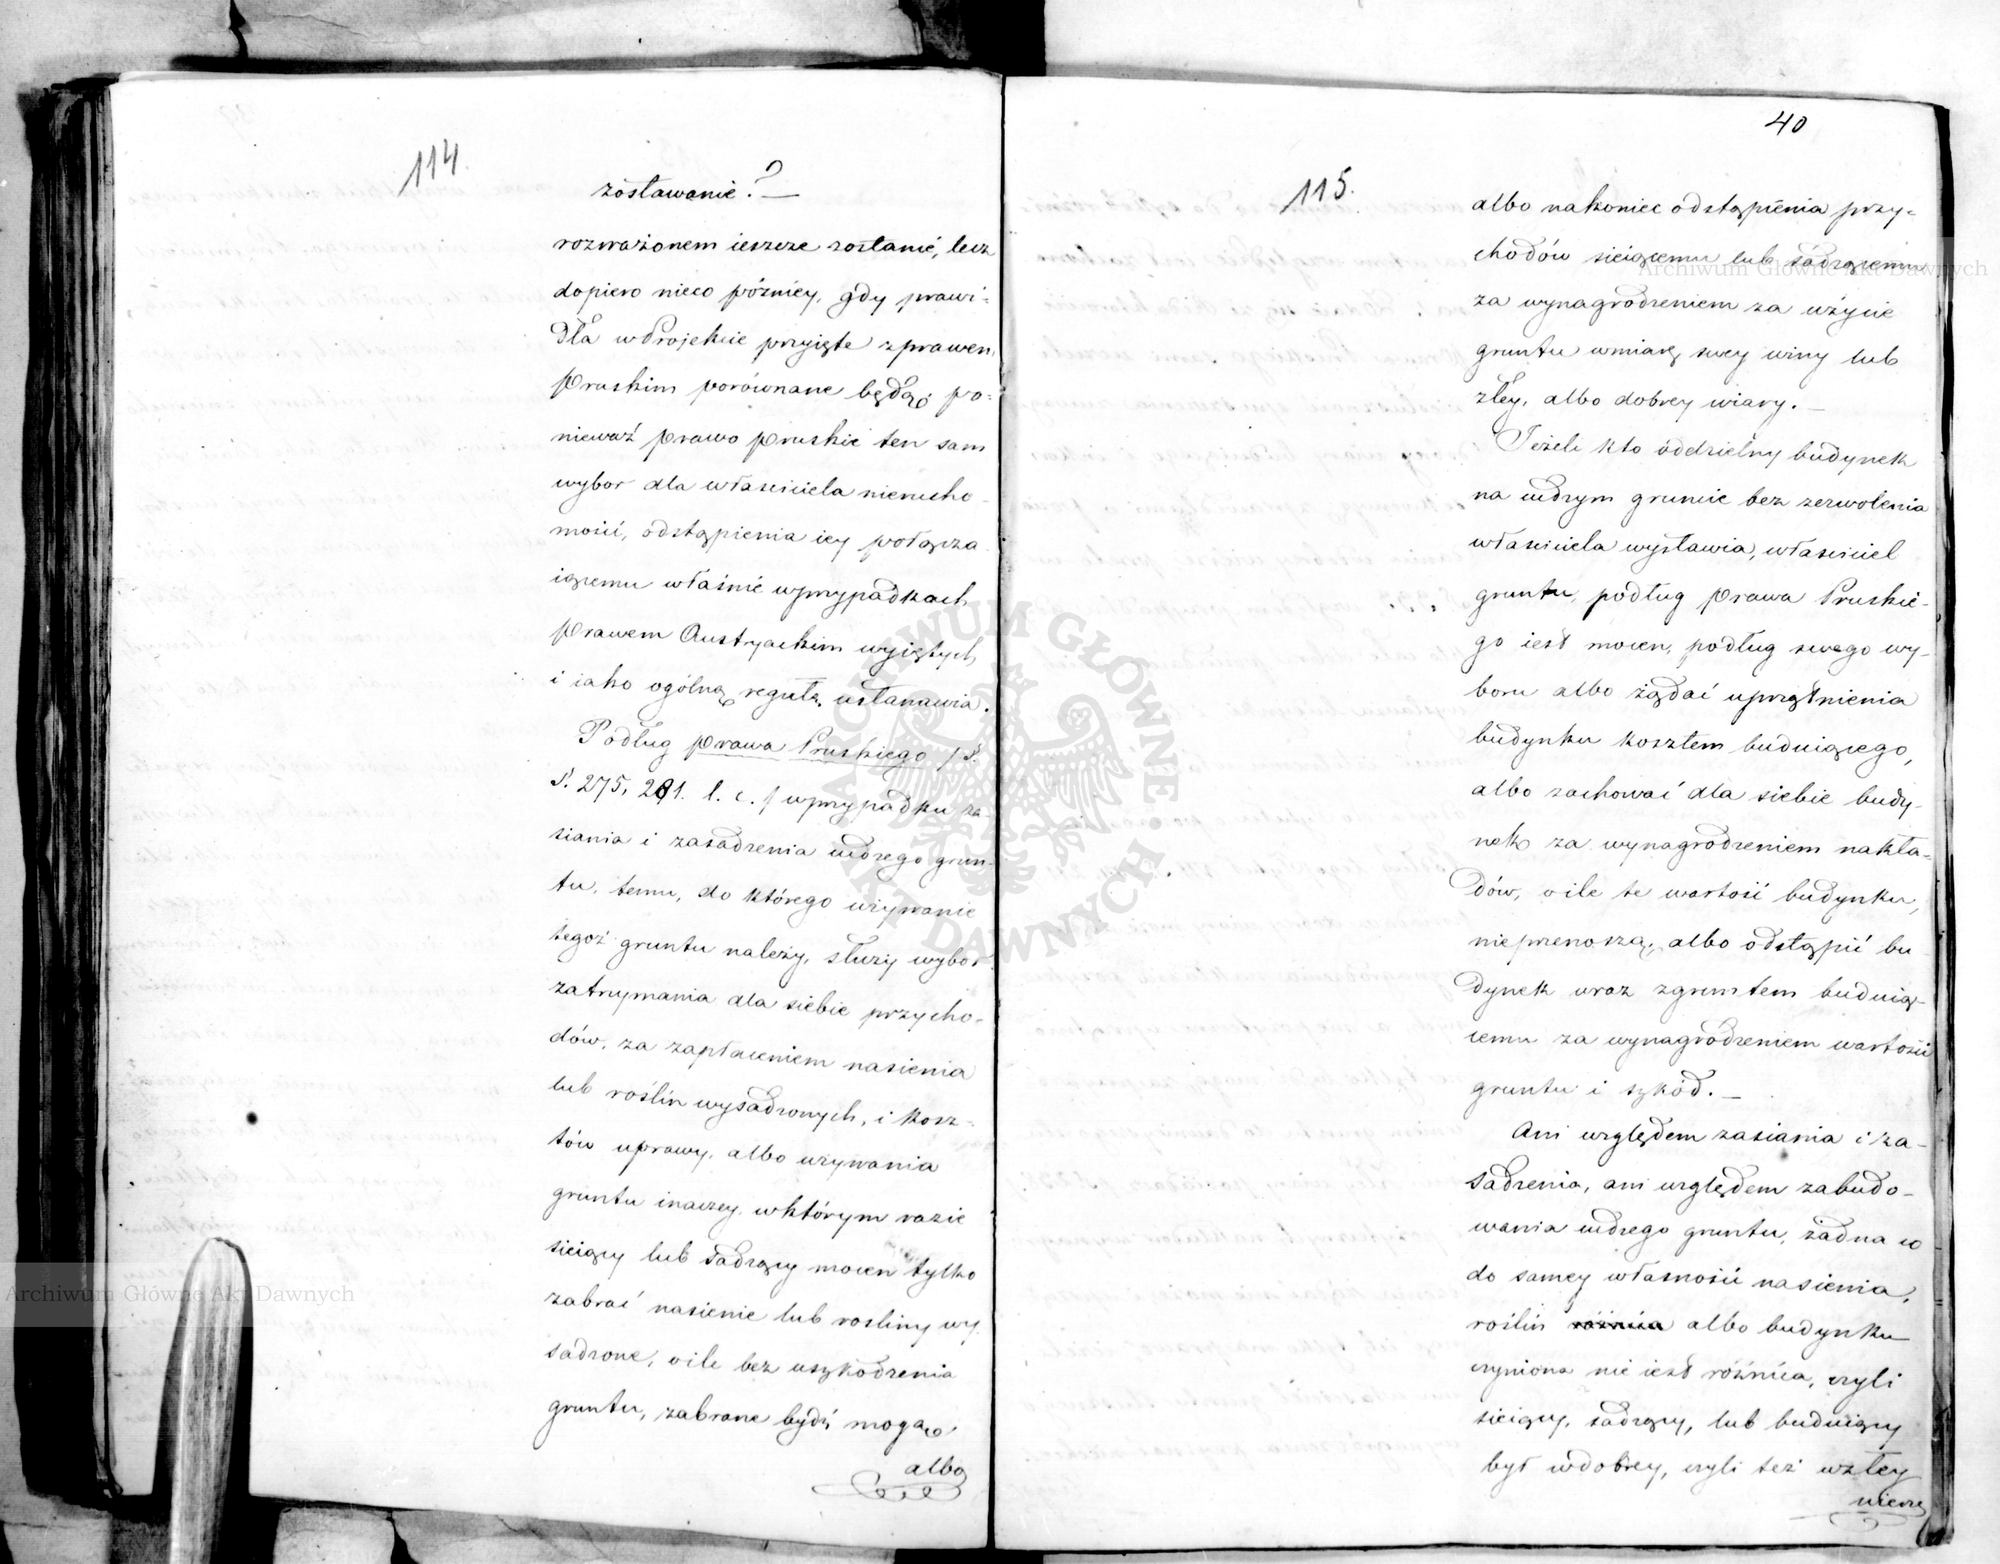 114.
zostawanie? —
rozważonem ieszcze zostanie, lecz
dopiero nieco później, gdy prawi-
dła w Projekcie przyięte z prawem
Pruskim porównane będą; po-
nieważ prawo pruskie ten sam
wybor dla właściciela nierucho-
mości, odstąpienia iey połącza
iącemu właśnie w przypadkach
prawem Austryackim wyiętych
i iako ogólną regułę ustanawia.
Podług prawa Pruskiego /§.
§. 275, 281. l. c./ w przypadku za-
siania i zasadzenia cudzego grun-
tu, temu, do którego używanie
tegoż gruntu należy, służy wybor
zatrzymania dla siebie przycho-
dów, za zapłaceniem nasienia
lub roślin wysadzonych, i kosz-
tów uprawy, albo używania
gruntu inaczey, w którym razie
sieiący lub sadzący mocen tylko
zabrać nasienie lub rosliny wy
sadzone, o ile bez uszkodzenia
gruntu, zabrane bydź mogą,
albo
40
115.
albo nakoniec odstąpienia przy-
chodów sieiącemu lub sadzącemu
za wynagrodzeniem za użycie
gruntu w miarę swey winy lub
złey, albo dobrey wiary. —
Jeżeli kto oddzielny budynek
na cudzym gruncie bez zezwolenia
właściciela wystawia, właściciel
gruntu, podług prawa Pruskie-
go iest mocen, podług swego wy-
boru albo żądać uprzątnienia
budynku kosztem buduiącego,
albo zachować dla siebie budy-
nek za wynagrodzeniem nakła-
dów, o ile te wartość budynku,
nieprzenoszą, albo odstąpić bu
dynek wraz z gruntem buduią-
cemu za wynagrodzeniem wartości
gruntu i szkód. —
Ani względem zasiania i za-
sadzenia, ani względem zabudo-
wania cudzego gruntu, żadna co
do samey własności nasienia,
roślin różnica albo budynku
czyniona nie iest różnica, czyli
sieiący, sadzący, lub buduiący
był w dobrey, czyli też w złey
wierze
Archiwum Główne Akt Dawnych
Archiwum Główne Akt Dawnych
ARCHIWUM GŁÓWNE AKT DAWNYCH